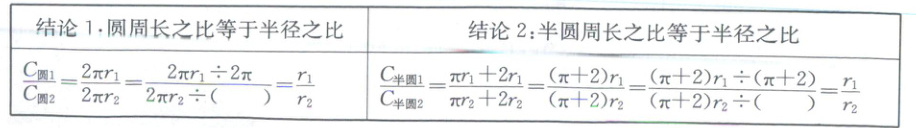 结论 1.圆周长之比等于半径之比
结论 2:半圆周长之比等于半径之比
C圆1/C圆2=2πr₁/2πr₂=2πr₁÷2π/2πr₂÷(  )=r₁/r₂
C半圆1/C半圆2=πr₁+2r₁/πr₂+2r₂=(π+2)r₁/(π+2)r₂=(π+2)r₁÷(π+2)/(π+2)r₂÷(  )=r₁/r₂